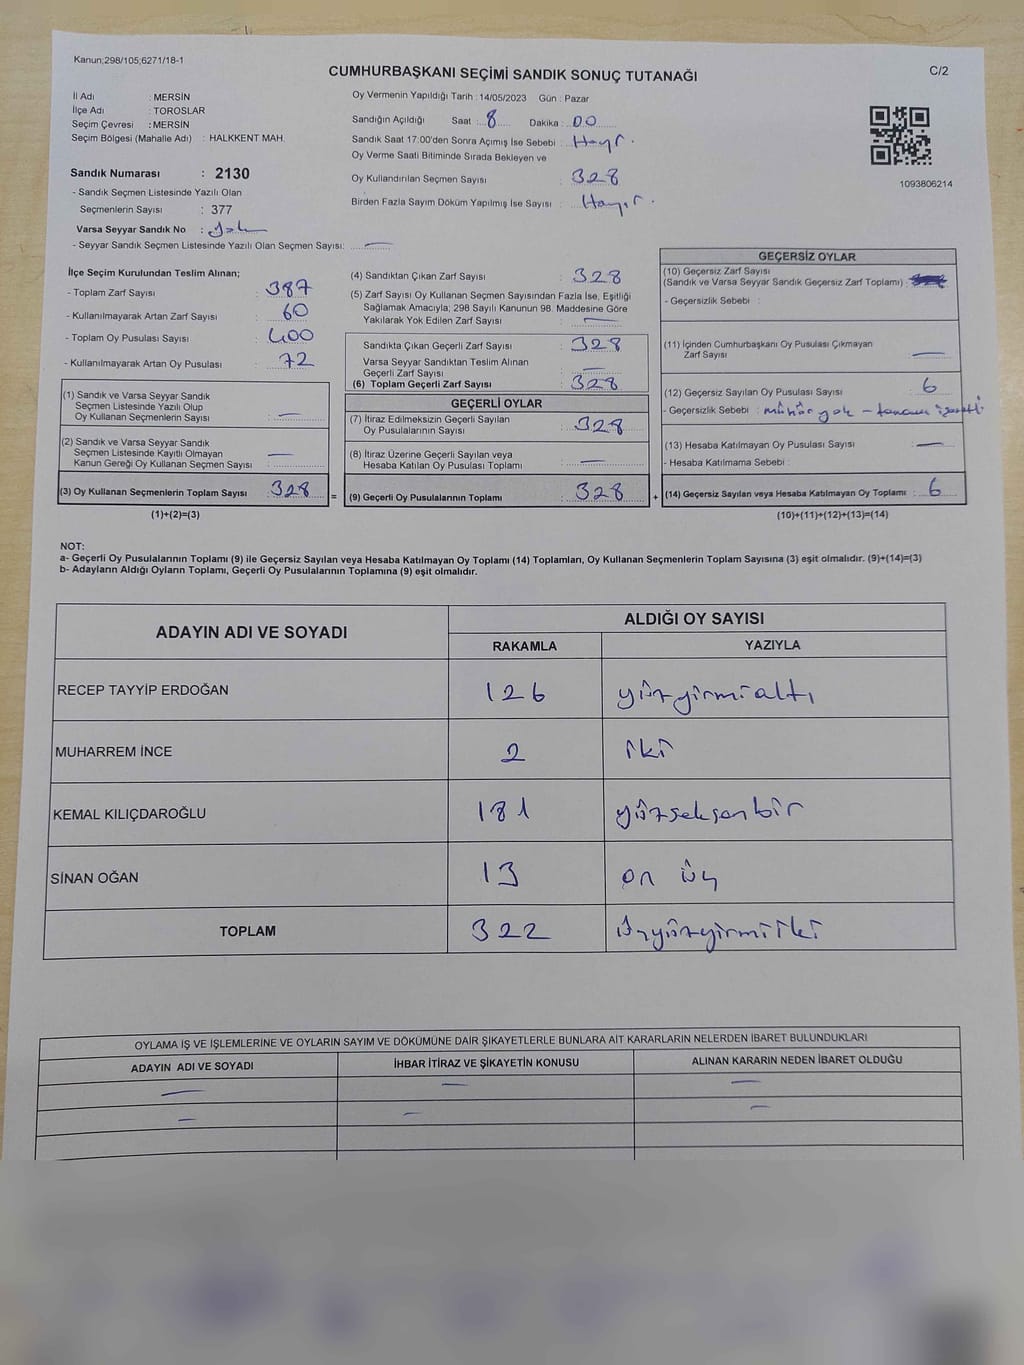 Kanun;298/105;6271/18-1
CUMHURBAŞKANI SEÇİMİ SANDIK SONUÇ TUTANAĞI
C/2
İl Adı : MERSİN
İlçe Adı : TOROSLAR
Seçim Çevresi : MERSİN
Seçim Bölgesi (Mahalle Adı) : HALKKENT MAH.
Sandık Numarası : 2130
- Sandık Seçmen Listesinde Yazılı Olan
Seçmenlerin Sayısı : 377
Varsa Seyyar Sandık No : Yok
- Seyyar Sandık Seçmen Listesinde Yazılı Olan Seçmen Sayısı: —
Oy Vermenin Yapıldığı Tarih : 14/05/2023 Gün : Pazar
Sandığın Açıldığı Saat : 8 Dakika : 00
Sandık Saat 17:00'den Sonra Açımış İse Sebebi : Hayr.
Oy Verme Saati Bitiminde Sırada Bekleyen ve
Oy Kullandırılan Seçmen Sayısı : 328
Birden Fazla Sayım Döküm Yapılmış İse Sayısı : Hayır.
1093806214
İlçe Seçim Kurulundan Teslim Alınan;
- Toplam Zarf Sayısı : 387
- Kullanılmayarak Artan Zarf Sayısı : 60
- Toplam Oy Pusulası Sayısı : 400
- Kullanılmayarak Artan Oy Pusulası : 72
(1) Sandık ve Varsa Seyyar Sandık
Seçmen Listesinde Yazılı Olup
Oy Kullanan Seçmenlerin Sayısı : —
(2) Sandık ve Varsa Seyyar Sandık
Seçmen Listesinde Kayıtlı Olmayan
Kanun Gereği Oy Kullanan Seçmen Sayısı : —
(3) Oy Kullanan Seçmenlerin Toplam Sayısı : 328
(1)+(2)=(3)
=
(4) Sandıktan Çıkan Zarf Sayısı : 328
(5) Zarf Sayısı Oy Kullanan Seçmen Sayısından Fazla İse, Eşitliği
Sağlamak Amacıyla; 298 Sayılı Kanunun 98. Maddesine Göre
Yakılarak Yok Edilen Zarf Sayısı : —
Sandıkta Çıkan Geçerli Zarf Sayısı : 328
Varsa Seyyar Sandıktan Teslim Alınan
Geçerli Zarf Sayısı : —
(6) Toplam Geçerli Zarf Sayısı : 328
GEÇERLİ OYLAR
(7) İtiraz Edilmeksizin Geçerli Sayılan
Oy Pusulalarının Sayısı : 328
(8) İtiraz Üzerine Geçerli Sayılan veya
Hesaba Katılan Oy Pusulası Toplamı : —
(9) Geçerli Oy Pusulalarının Toplamı : 328
+
GEÇERSİZ OYLAR
(10) Geçersiz Zarf Sayısı
(Sandık ve Varsa Seyyar Sandık Geçersiz Zarf Toplamı) :
- Geçersizlik Sebebi :
(11) İçinden Cumhurbaşkanı Oy Pusulası Çıkmayan
Zarf Sayısı : —
(12) Geçersiz Sayılan Oy Pusulası Sayısı : 6
- Geçersizlik Sebebi : mühür yok -
(13) Hesaba Katılmayan Oy Pusulası Sayısı : —
- Hesaba Katılmama Sebebi :
(14) Geçersiz Sayılan veya Hesaba Katılmayan Oy Toplamı : 6
(10)+(11)+(12)+(13)=(14)
NOT:
a- Geçerli Oy Pusulalarının Toplamı (9) ile Geçersiz Sayılan veya Hesaba Katılmayan Oy Toplamı (14) Toplamları, Oy Kullanan Seçmenlerin Toplam Sayısına (3) eşit olmalıdır. (9)+(14)=(3)
b- Adayların Aldığı Oyların Toplamı, Geçerli Oy Pusulalarının Toplamına (9) eşit olmalıdır.
ADAYIN ADI VE SOYADI
ALDIĞI OY SAYISI
RAKAMLA YAZIYLA
RECEP TAYYİP ERDOĞAN 126 yüzyirmialtı
MUHARREM İNCE 2 iki
KEMAL KILIÇDAROĞLU 181 yüzseksenbir
SİNAN OĞAN 13 on üç
TOPLAM 322 üçyüzyirmiiki
OYLAMA İŞ VE İŞLEMLERİNE VE OYLARIN SAYIM VE DÖKÜMÜNE DAİR ŞİKAYETLERLE BUNLARA AİT KARARLARIN NELERDEN İBARET BULUNDUKLARI
ADAYIN ADI VE SOYADI İHBAR İTİRAZ VE ŞİKAYETİN KONUSU ALINAN KARARIN NEDEN İBARET OLDUĞU
— — —
— — —